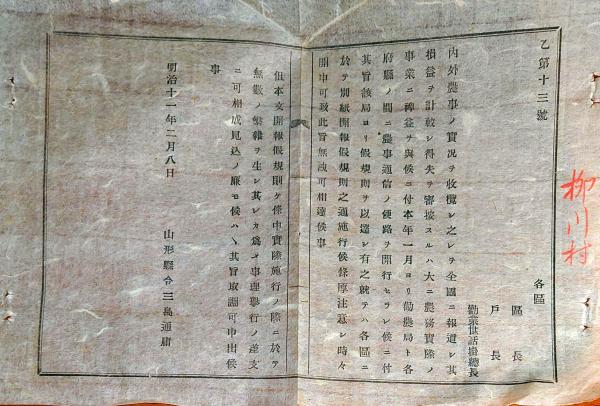 柳川村
乙第十三號
各區
區長
戶長
勸業世話掛總長
內外農事ノ實況ヲ收攬シ之レヲ全國ニ報道シ其
損益ヲ計較シ得失ヲ審按スルハ大ニ農務實際ノ
事業ニ裨益ヲ與候ニ付本年一月ヨリ勸農局ト各
府縣ノ間ニ農事通信ノ便路ヲ開行セラレ候ニ付
其旨該局ヨリ假規則ヲ以達シ有之就テハ各區ニ
於テ別紙開報假規則之通施行候條厚注意シ時々
開申可致此旨無洩可相達候事
但本文開報假規則ケ條中實際施行ノ際ニ於テ
無數ノ繁雜ヲ生シ其レカ爲メ事理擧行ノ差支
ニ可相成見込ノ廉モ候ハヽ其旨取調可申出候
事
明治十一年二月八日
山形縣令三島通庸